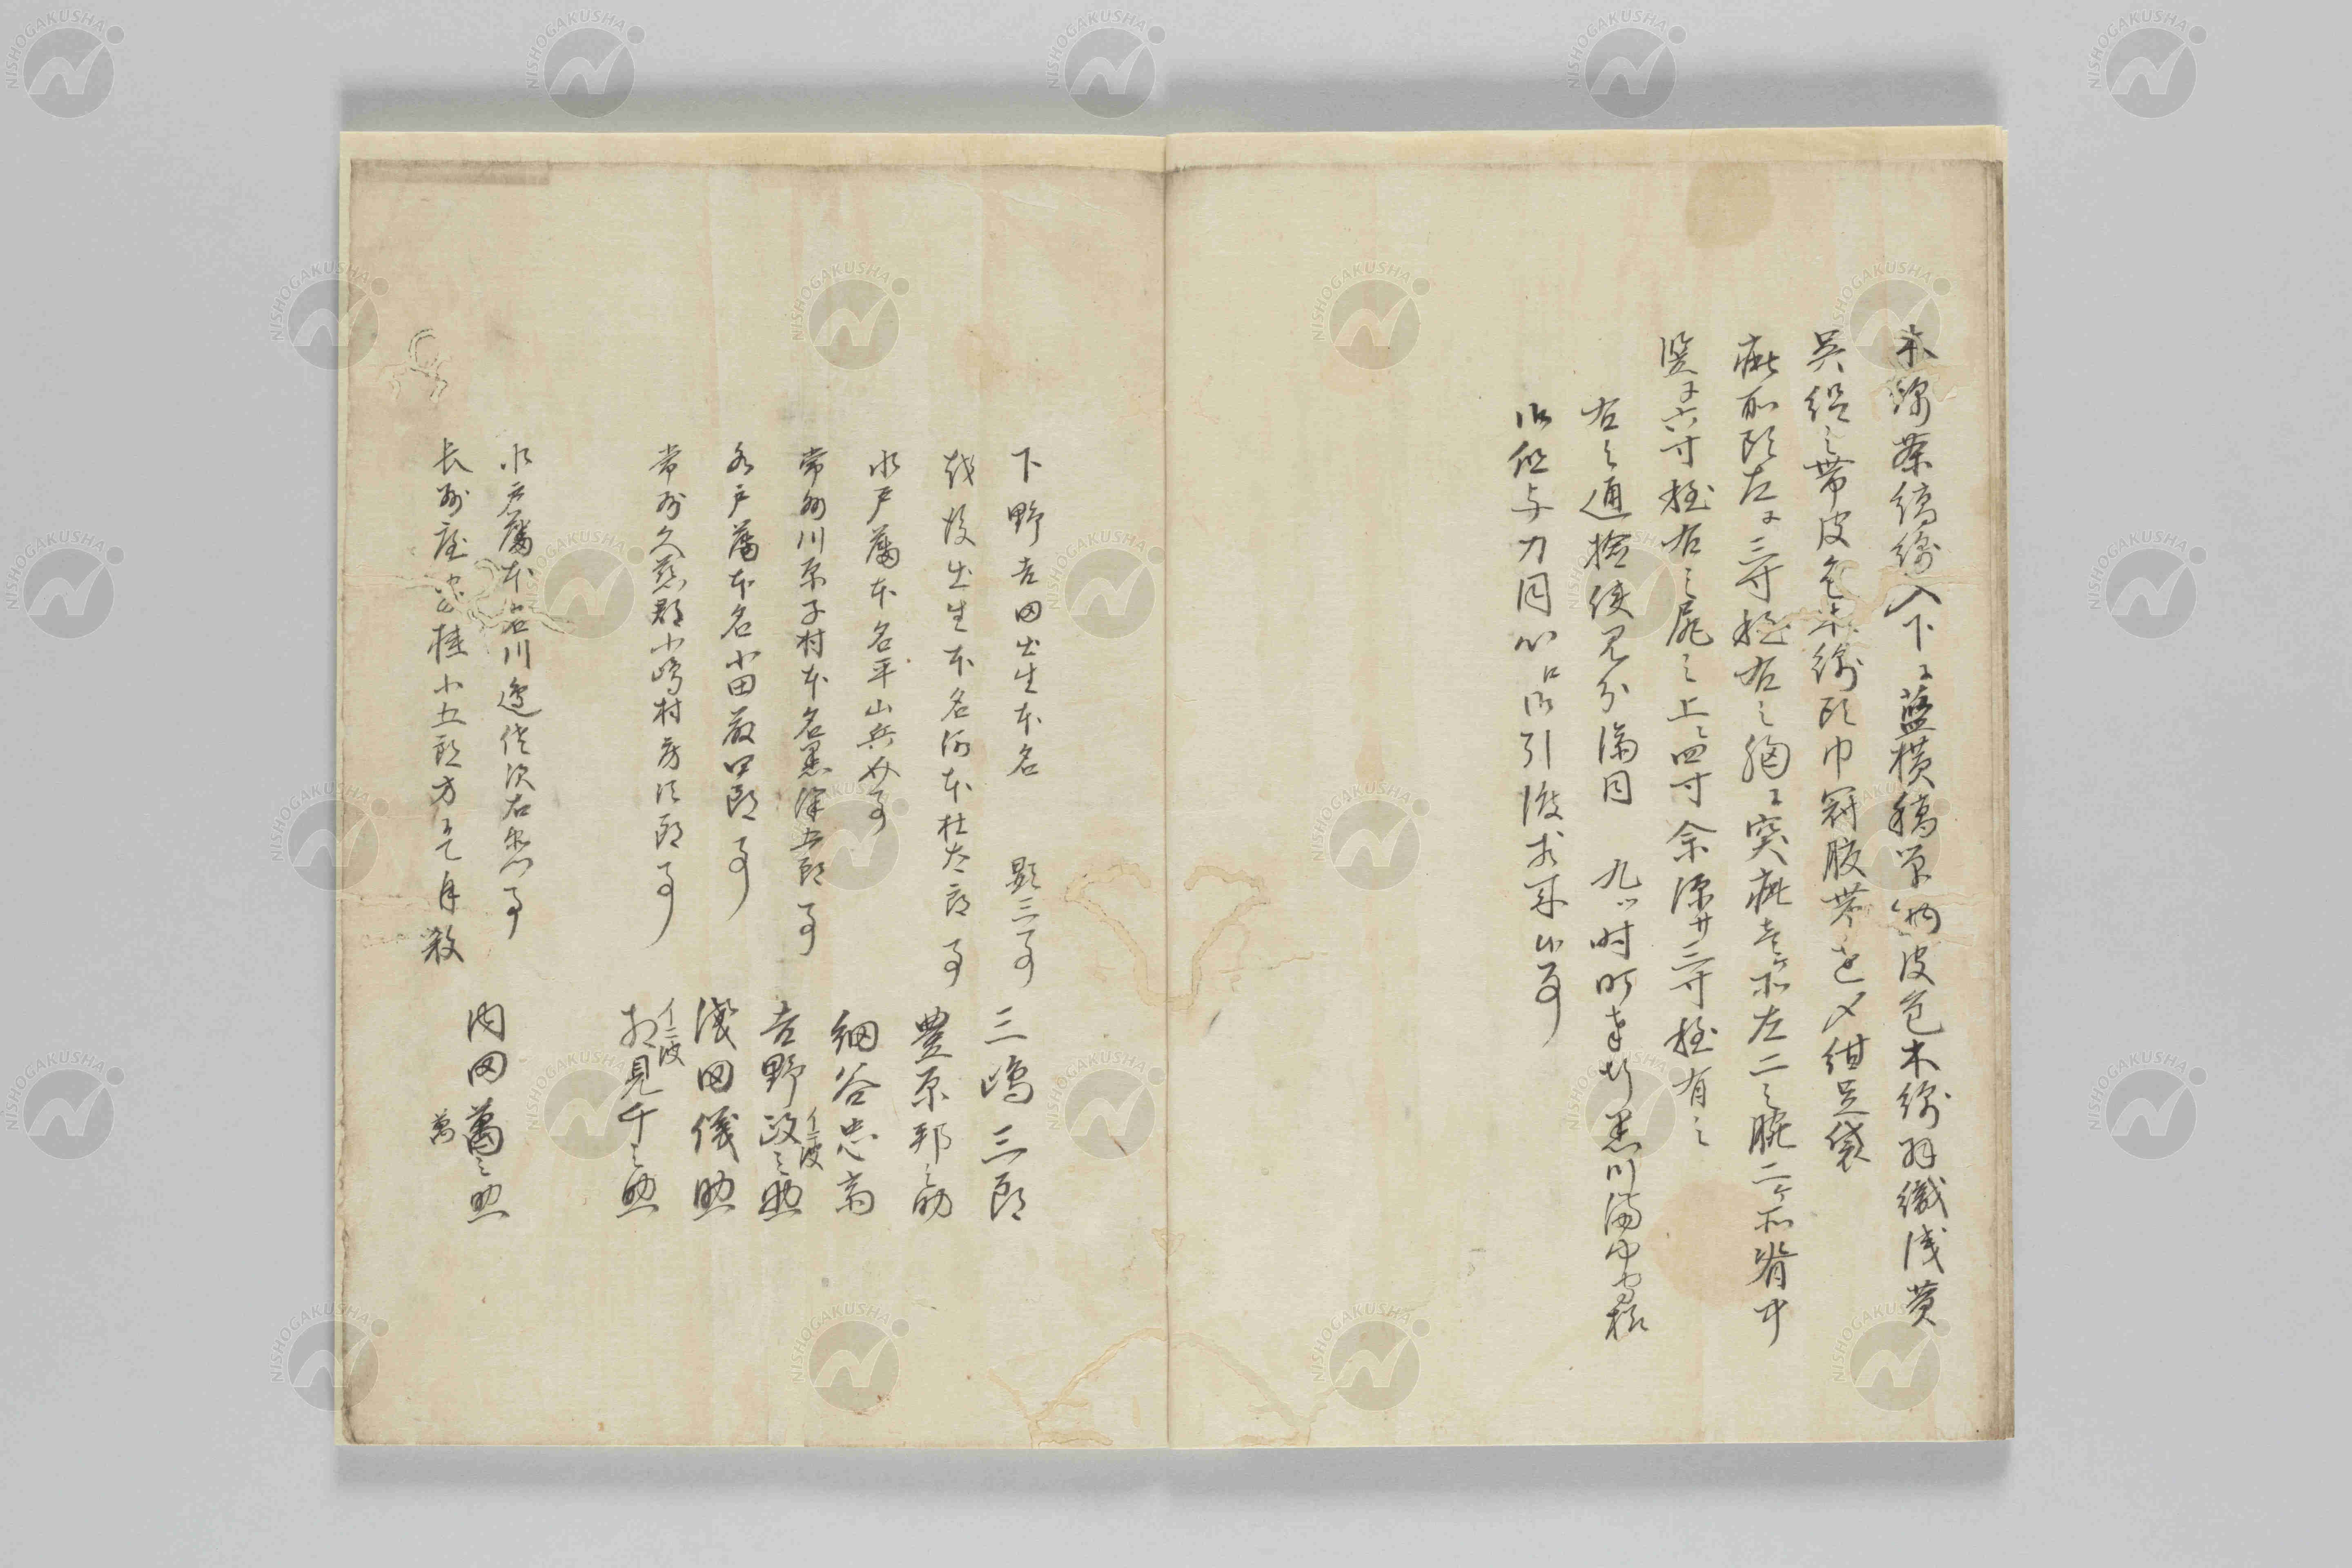 木綿茶縞綿入下ニ藍横縞単物皮色木綿羽織浅黄
呉絽之帯皮色木綿頭巾冠股帯〆紺足袋
疵所頭左ニ三寸程右之胸ニ突疵壱ヶ所左二之腕二ヶ所背中
竪ニ六寸程右之尻之上ニ四寸余深サ二寸程有之
右之通検使見分済同 九ツ時町奉行黒川備中守様
御組与力同心江御引渡相成候事
下野吉田出生本名 顕三事 三嶋三郎
越後出生本名河本杜太郎事 豊原邦之助
水戸藩本名平山兵介事 細谷忠斎
常州川原子村本名黒澤五郎事 吉野政之助
水戸藩本名小田彦四郎事 浅田儀助
常州久慈郡小嶋村 房次郎事 相見千之助
水戸藩本名川邊佐次右衛門事 内田萬之助
長州屋敷桂小五郎方ニて自殺
NISHOGAKUSHA